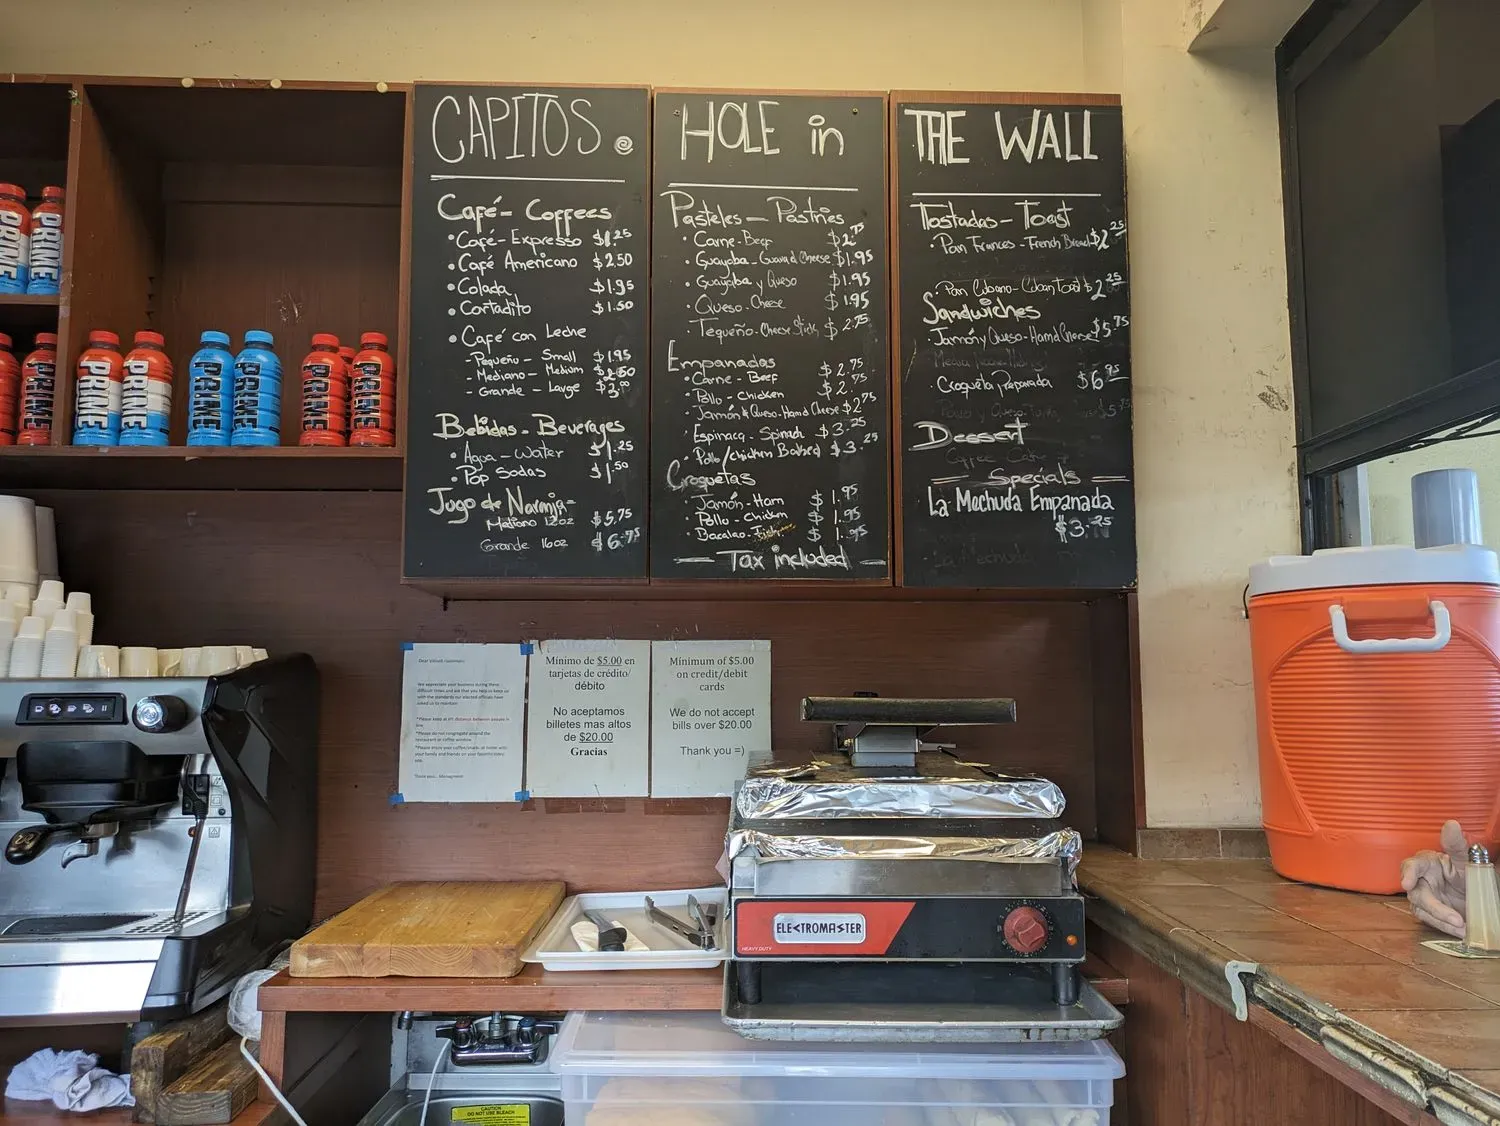 CAPITOS
Café - Coffees
• Café - Expresso $1.25
• Café Americano $2.50
• Colada $1.95
• Cortadito $1.50
• Café con Leche
- Pequeño - Small $1.95
- Mediano - Medium $2.50
- Grande - Large $3.00
Bebidas - Beverages
• Agua - Water $1.25
• Pop Sodas $1.50
Jugo de Naranja -
Mediano 12oz $5.75
Grande 16oz $6.75
HOLE in
Pasteles - Pastries
• Carne - Beef $2.75
• Guayaba - Guava & Cheese $1.95
• Guayaba y Queso $1.95
• Queso - Cheese $1.95
• Tequeño - Cheese Stick $2.75
Empanadas
• Carne - Beef $2.75
• Pollo - Chicken $2.75
• Jamón & Queso - Ham & Cheese $2.75
• Espinaca - Spinach $3.25
• Pollo/chicken Baked $3.25
Croquetas
• Jamón - Ham $1.95
• Pollo - Chicken $1.95
• Bacalao - Fish $1.95
— Tax included —
THE WALL
Tostadas - Toast
• Pan Frances - French Bread $2.25
• Pan Cubano - Cuban Toast $2.25
Sandwiches
• Jamón y Queso - Ham & Cheese $5.75
• Croqueta Preparada $6.95
Dessert
Coffee Cake
— Specials —
La Mechuda Empanada
$3.25
PRIME
PRIME
PRIME
PRIME
PRIME
PRIME
PRIME
PRIME
PRIME
We appreciate your business during these
difficult times and ask that you help us keep us
with the standards our elected officials have
asked us to maintain
*Please do not congregate around the
restaurant or coffee window.
Thank you, Management
Mínimo de $5.00 en
tarjetas de crédito/
débito
No aceptamos
billetes mas altos
de $20.00
Gracias
Mínimum of $5.00
on credit/debit
cards
We do not accept
bills over $20.00
Thank you =)
ELECTROMASTER
HEAVY DUTY
CAUTION
DO NOT USE BLEACH